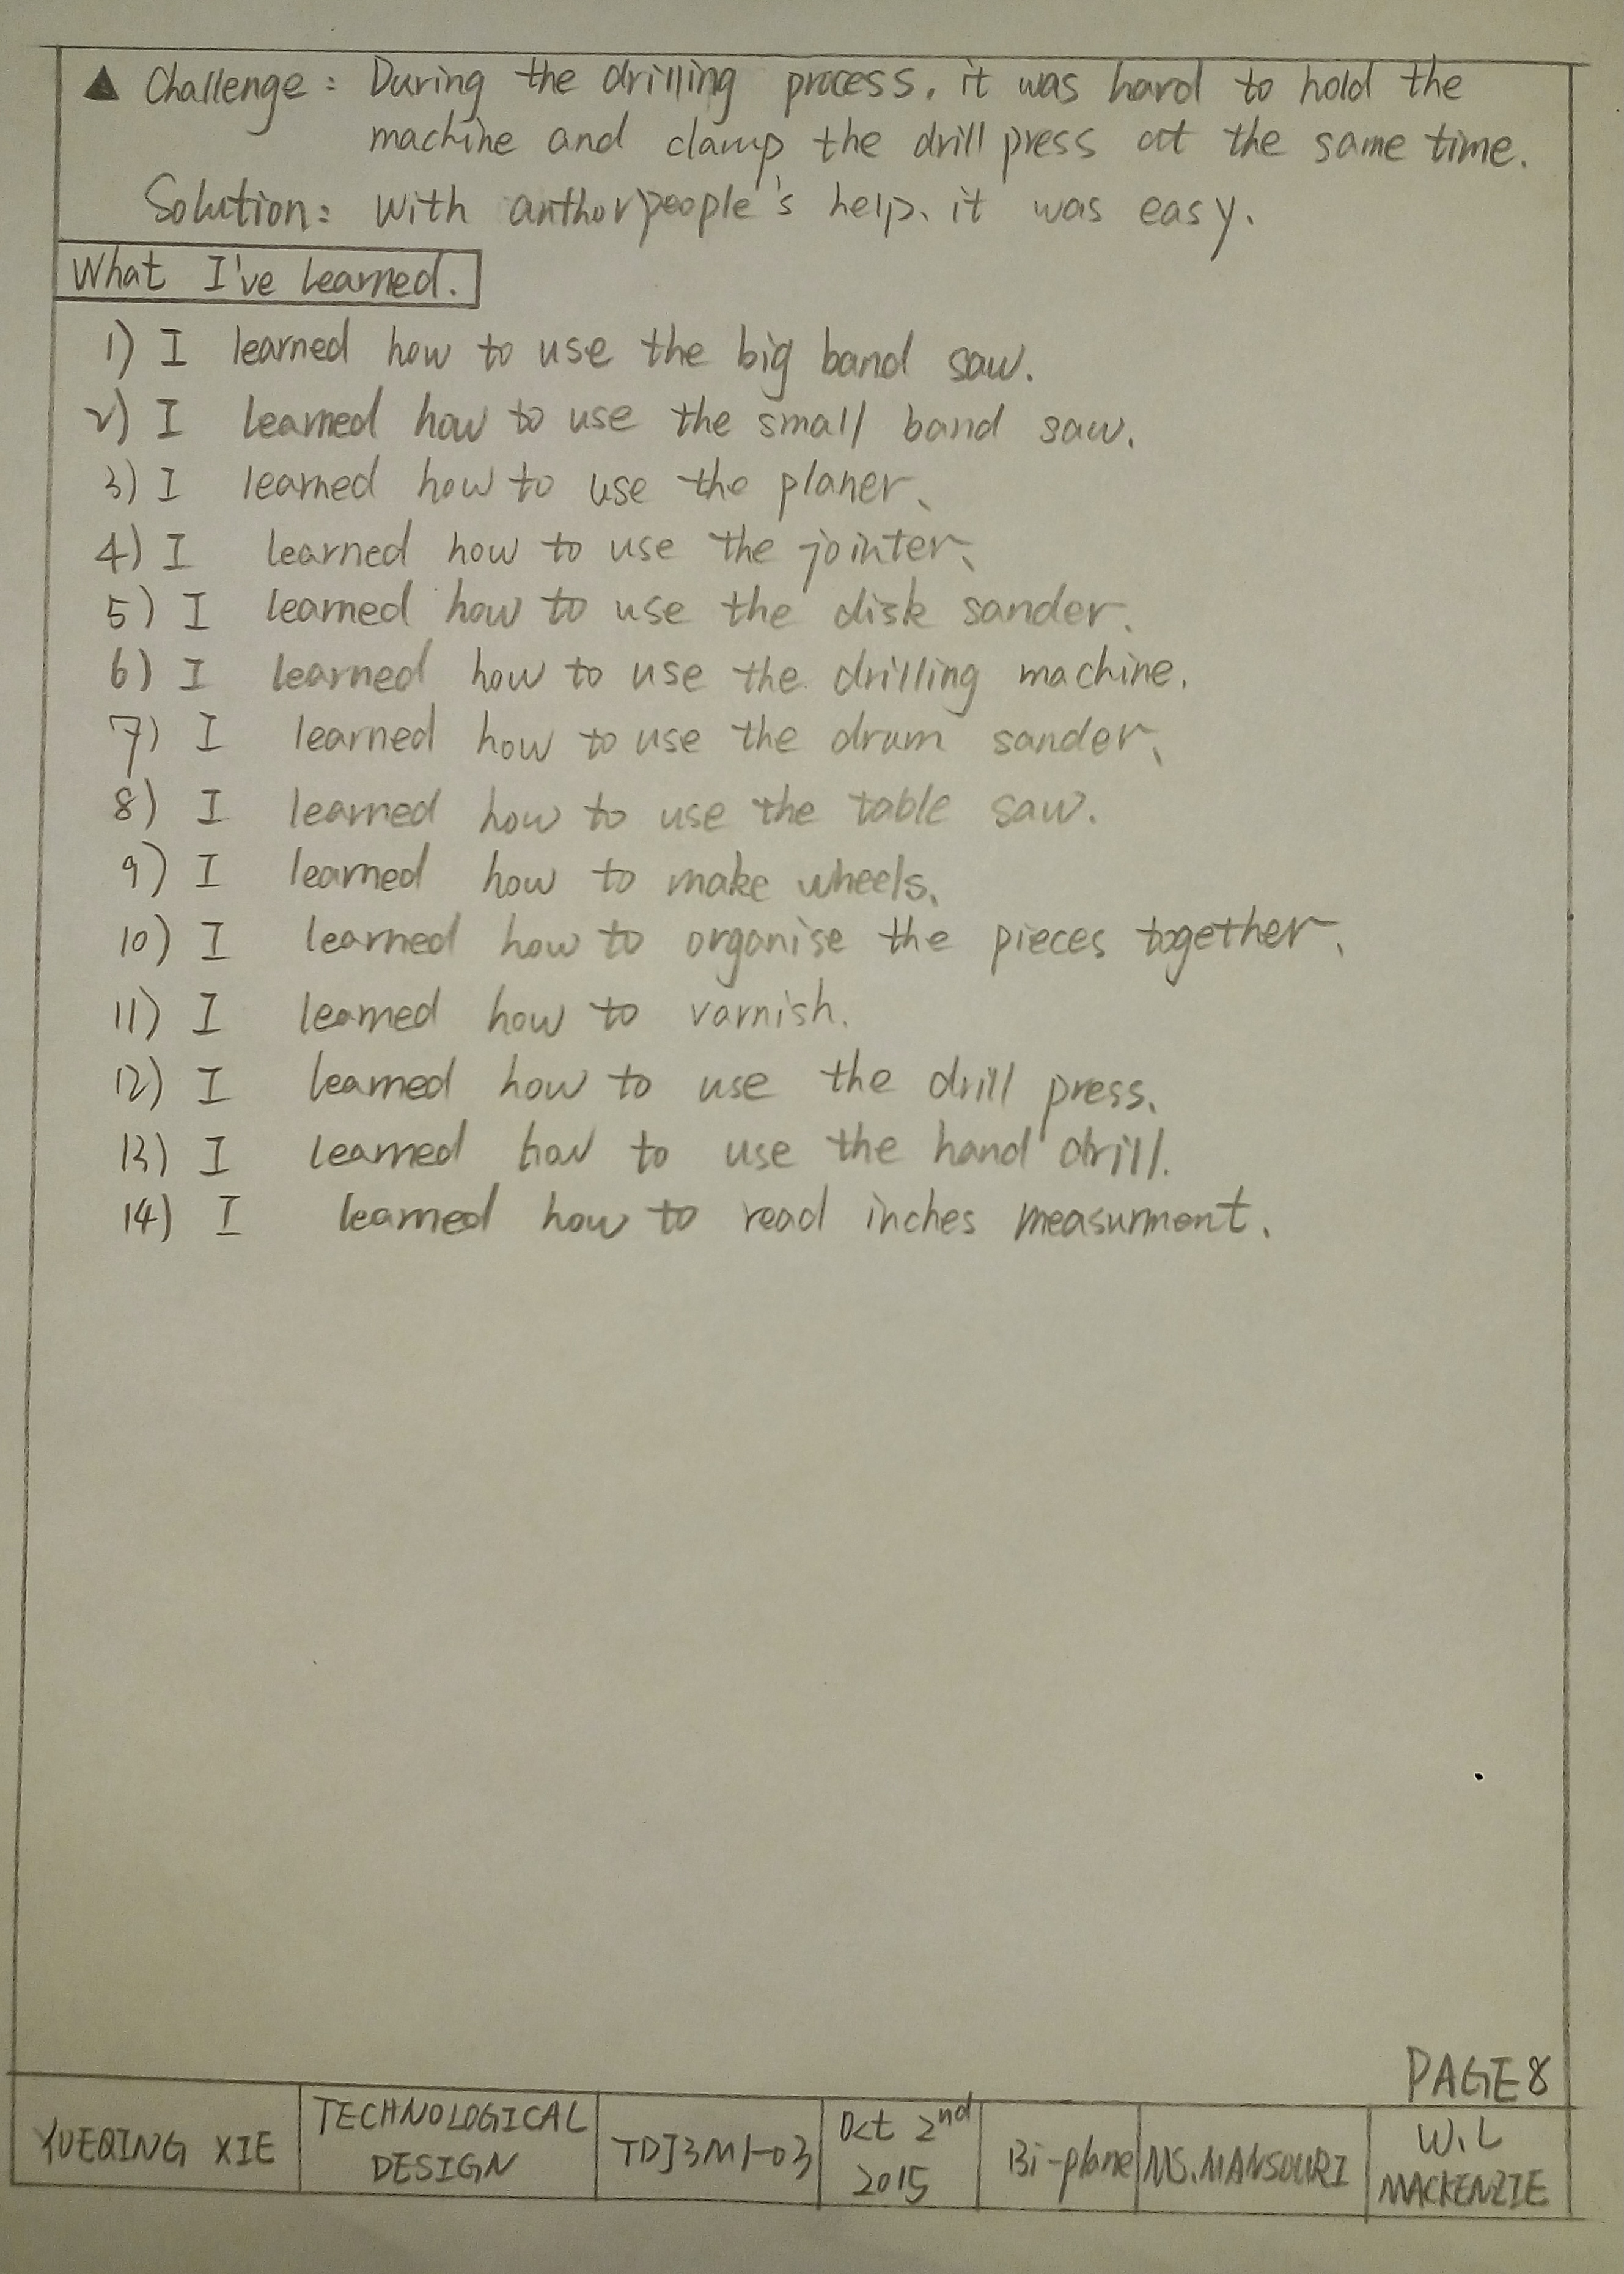 ▲ Challenge: During the drilling process, it was hard to hold the
machine and clamp the drill press at the same time.
Solution: With anthor people's help, it was easy.
What I've learned.
1) I learned how to use the big band saw.
2) I learned how to use the small band saw.
3) I learned how to use the planer.
4) I learned how to use the jointer.
5) I learned how to use the disk sander.
6) I learned how to use the drilling machine.
7) I learned how to use the drum sander.
8) I learned how to use the table saw.
9) I learned how to make wheels.
10) I learned how to organise the pieces together.
11) I learned how to varnish.
12) I learned how to use the drill press.
13) I learned how to use the hand drill.
14) I learned how to read inches measurment.
PAGE 8
YUEQING XIE
TECHNOLOGICAL
DESIGN
TDJ3M1-03
Oct 2nd
2015
Bi-plane
MS.MANSOURI
W.L
MACKENZIE